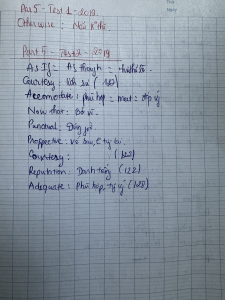 Part 5 - Test 1 - 2019
Otherwise : Nếu k thì
Part 5 - Test 2 - 2019
As If = As though =
Courtesy : lịch sự
Accomodate : phù hợp = meet = đáp ứng
Now that : Bởi vì
Punctual : Đúng giờ
Prospective : Về sau,
Courtesy :
Reputation : Danh tiếng (122)
Adequate : Phù hợp,